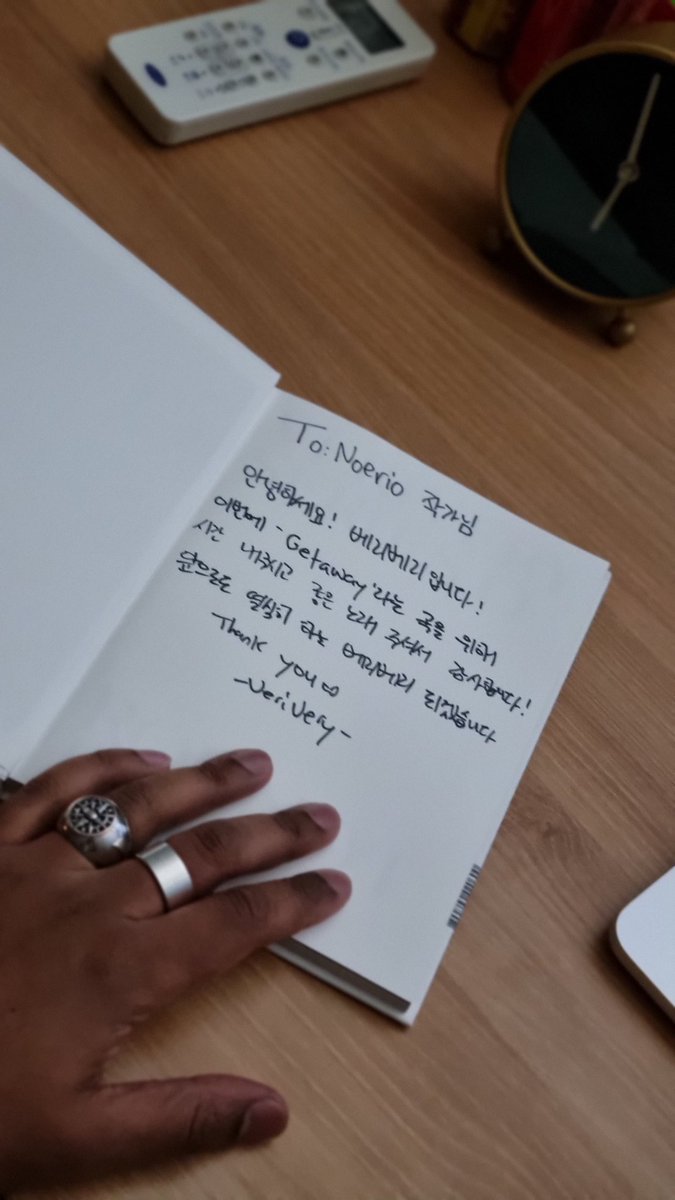 To: Noerio 작가님
안녕하세요! 베리베리입니다!
이번에 - Getaway'라는 곡을 위해
시간 내주시고 좋은 노래 주셔서 감사합니다!
앞으로도 열심히 하는 베리베리 되겠습니다
Thank you
-VeriVery-